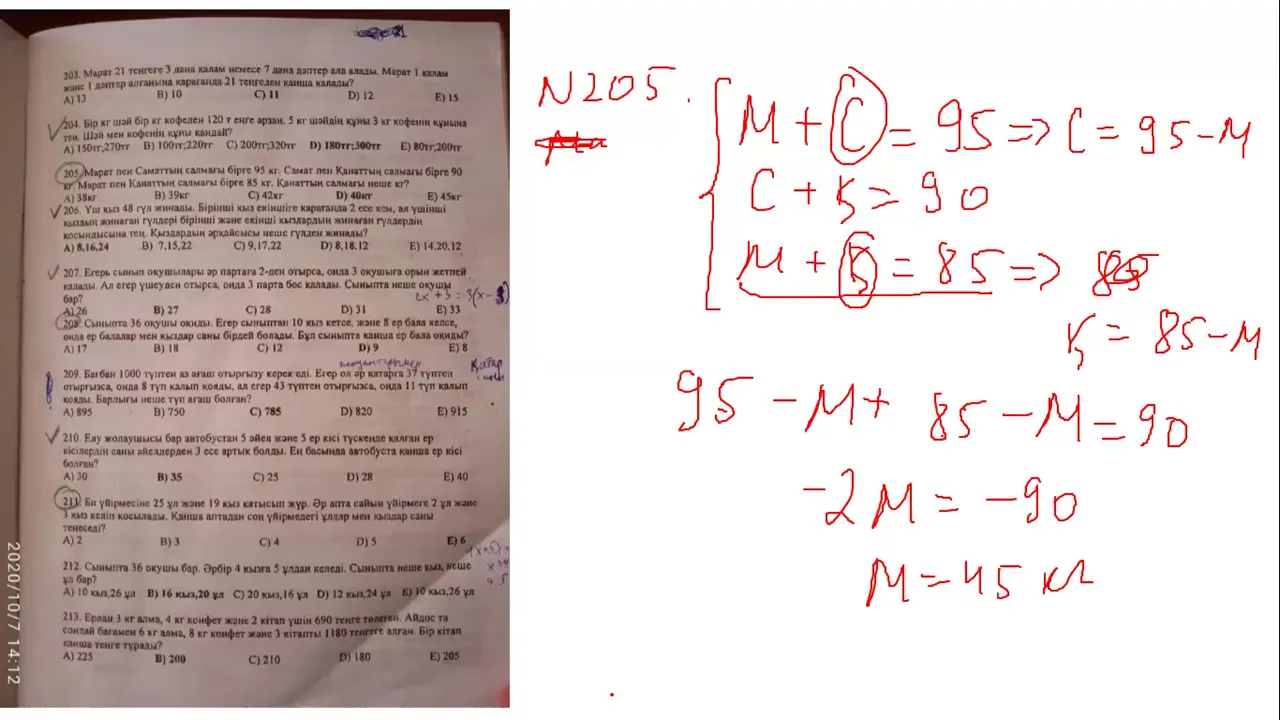 203. Марат 21 теңгеге 3 дана қалам немесе 7 дана дәптер ала алады. Марат 1 қалам
және 1 дәптер алғанына қарағанда 21 теңгеден қанша қалады?
A) 13 B) 10 C) 11 D) 12 E) 15
204. Бір кг шәй бір кг кофеден 120 т еңге арзан. 5 кг шәйдің құны 3 кг кофенің құнына
тең. Шәй мен кофенің құны қандай?
A) 150тг;270тг B) 100тг;220тг C) 200тг;320тг D) 180тг;300тг E) 80тг;200тг
205. Марат пен Саматтың салмағы бірге 95 кг. Самат пен Қанаттың салмағы бірге 90
кг. Марат пен Қанаттың салмағы бірге 85 кг. Қанаттың салмағы неше кг?
A) 38кг B) 39кг C) 42кг D) 40кг E) 45кг
206. Үш қыз 48 гүл жинады. Бірінші қыз екіншіге қарағанда 2 есе кем, ал үшінші
қыздың жинаған гүлдері бірінші және екінші қыздардың жинаған гүлдердің
қосындысына тең. Қыздардың әрқайсысы неше гүлден жинады?
A) 8,16,24 B) 7,15,22 C) 9,17,22 D) 8,18,12 E) 14,20,12
207. Егерь сынып оқушылары әр партаға 2-ден отырса, онда 3 оқушыға орын жетпей
қалады. Ал егер үшеуден отырса, онда 3 парта бос қалады. Сыныпта неше оқушы
бар?
2x + 3 = 3(x - 3)
A) 26 B) 27 C) 28 D) 31 E) 33
208. Сыныпта 36 оқушы оқиды. Егер сыныптан 10 қыз кетсе, және 8 ер бала келсе,
онда ер балалар мен қыздар саны бірдей болады. Бұл сыныпта қанша ер бала оқиды?
A) 17 B) 18 C) 12 D) 9 E) 8
қатар
209. Бағбан 1000 түптен аз ағаш отырғызу керек еді. Егер ол әр қатарға 37 түптен
отырғызса, онда 8 түп қалып қояды, ал егер 43 түптен отырғызса, онда 11 түп қалып
қояды. Барлығы неше түп ағаш болған?
A) 895 B) 750 C) 785 D) 820 E) 915
210. Елу жолаушысы бар автобустан 5 әйел және 5 ер кісі түскенде қалған ер
кісілердің саны әйелдерден 3 есе артық болды. Ең басында автобуста қанша ер кісі
болған?
A) 30 B) 35 C) 25 D) 28 E) 40
211. Би үйірмесіне 25 ұл және 19 қыз қатысып жүр. Әр апта сайын үйірмеге 2 ұл және
3 қыз келіп қосылады. Қанша аптадан соң үйірмедегі ұлдар мен қыздар саны
теңеседі?
A) 2 B) 3 C) 4 D) 5 E) 6
212. Сыныпта 36 оқушы бар. Әрбір 4 қызға 5 ұлдан келеді. Сыныпта неше қыз, неше
ұл бар?
A) 10 қыз,26 ұл B) 16 қыз,20 ұл C) 20 қыз,16 ұл D) 12 қыз,24 ұл E) 10 қыз,26 ұл
213. Ерлан 3 кг алма, 4 кг конфет және 2 кітап үшін 690 теңге төлеген. Айдос та
сондай бағамен 6 кг алма, 8 кг конфет және 3 кітапты 1180 теңгеге алған. Бір кітап
қанша теңге тұрады?
A) 225 B) 200 C) 210 D) 180 E) 205
2020/10/7 14:12
N205.
М + С = 95 => С = 95-М
С + Қ = 90
М + Қ = 85 =>
Қ = 85-М
95 - М + 85 - М = 90
-2М = -90
М = 45 кг